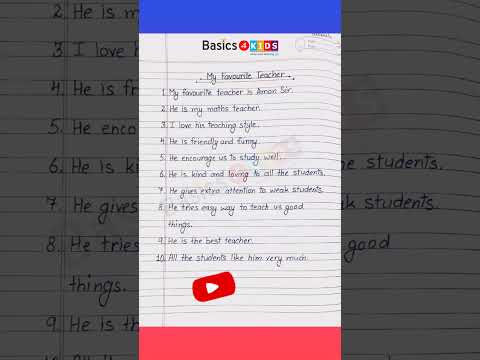 Basics 4 KIDS
My Favourite Teacher
1. My favourite teacher is Aman Sir.
2. He is my maths teacher.
3. I love his teaching style.
4. He is friendly and funny.
5. He encourage us to study well.
6. He is kind and loving to all the students.
7. He gives extra attention to weak students.
8. He tries easy way to teach us good
things.
9. He is the best teacher.
10. All the students like him very much.
2. He is m
3. I love
4. He is fr
5. He encou
6. He is k
7. He gives
8. He tries
things.
9. He is th
e students.
ak students.
good